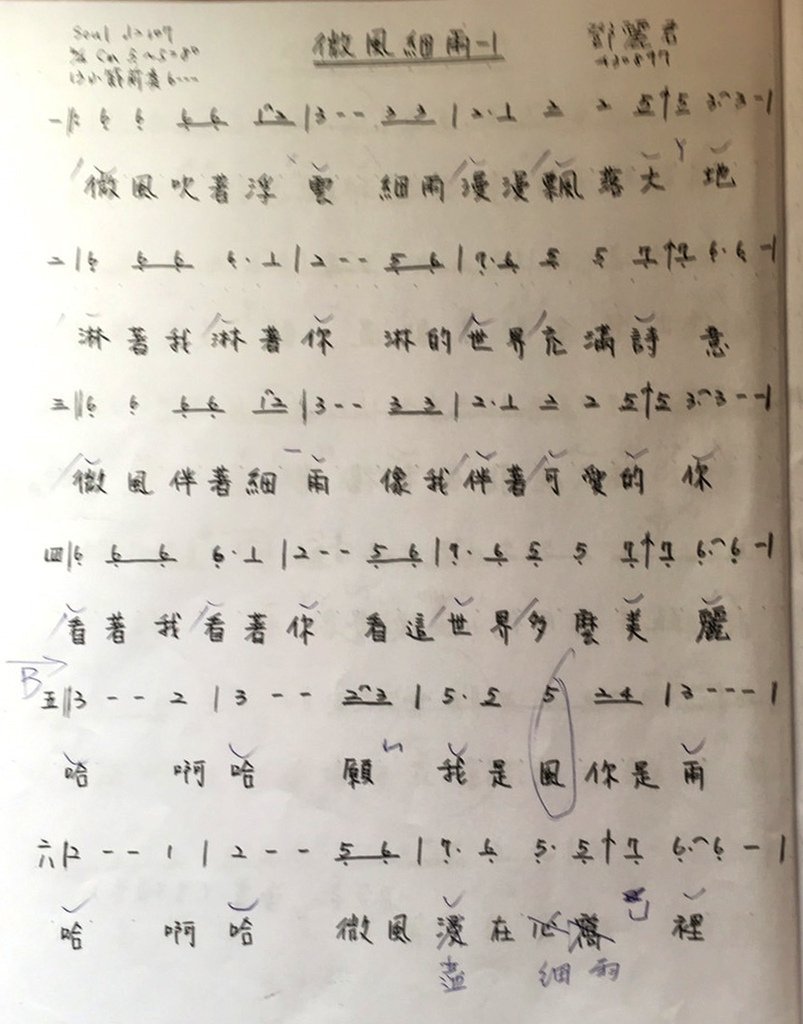 微風細雨-1
鄧麗君
一‖: 6 6 6 6 1 2 | 3 - - 3 3 | 2 · 1 2 2 5 5 3 3 - |
微風吹著浮雲 細雨漫漫飄落大地
二 | 6 6 6 6 · 1 | 2 - - 5 6 | 7 · 6 5 5 7 7 6 · 6 - |
淋著我淋著你 淋的世界充滿詩意
三‖ 6 6 6 6 1 2 | 3 - - 3 3 | 2 · 1 2 2 5 5 3 3 - - |
微風伴著細雨 像我伴著可愛的你
四 | 6 6 6 6 · 1 | 2 - - 5 6 | 7 · 6 5 5 7 7 6 · 6 - |
看著我看著你 看這世界多麼美麗
B
五‖ 3 - - 2 | 3 - - 2 3 | 5 · 5 5 2 4 | 3 - - - |
哈 啊哈 願 我是風你是雨
六 | 2 - - 1 | 2 - - 5 6 | 7 · 6 5 · 5 7 6 · 6 - |
哈 啊哈 微風漫在心窩裡
細雨